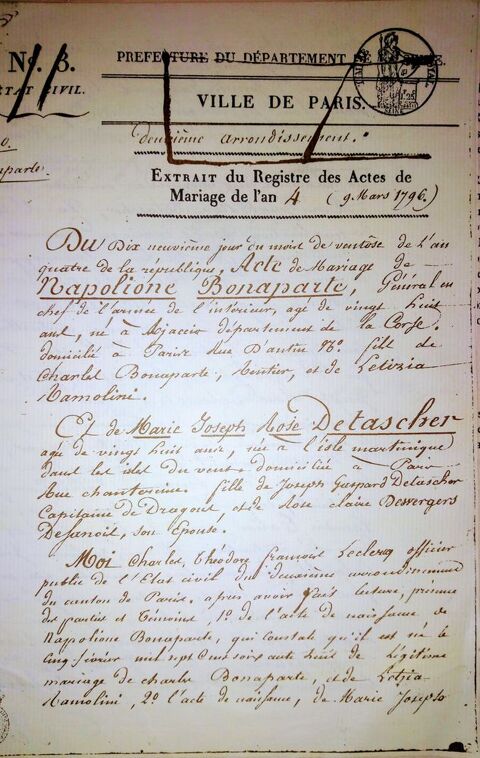 No. 3.
PREFECTURE DU DÉPARTEMENT DE
ETAT CIVIL.
TIMBRE
VILLE DE PARIS.
deuxième arrondissement.
aparte
EXTRAIT du Registre des Actes de
Mariage de l'an 4 (9 Mars 1796.)
Du Dix neuvième jour du mois de ventôse de l'an
quatre de la république. Acte de Mariage de
Napolione Bonaparte, Général en
chef de l'armée de l'intérieur, agé de vingt huit
ans, né à Ajaccio département de la Corse.
domicilié à Paris Rue D'antin No. fils de
Charles Bonaparte, Rentier, et de Letizia
Ramolini.
Et de Marie Joseph Rose Detascher
agée de vingt huit ans, née à l'isle martinique
dans les isles du vent. Domiciliée à Paris
Rue chantereine. fille de Joseph Gaspard Detascher
Capitaine de Dragons, et de Rose Claire Desvergers
Desanois, son Epouse.
Moi Charles, Théodore françois Leclercq officier
public de l'Etat civil du deuxième arrondissement
du canton de Paris. après avoir fait lecture, présence
des parties et Temoins, 1o. de l'acte de naissance de
Napolione Bonaparte, qui constate qu'il est né le
cinq février mil sept cens soixante huit de légitime
mariage de charles Bonaparte, et de Letizia
Ramolini, 2o. l'acte de naissance, de Marie Josephe